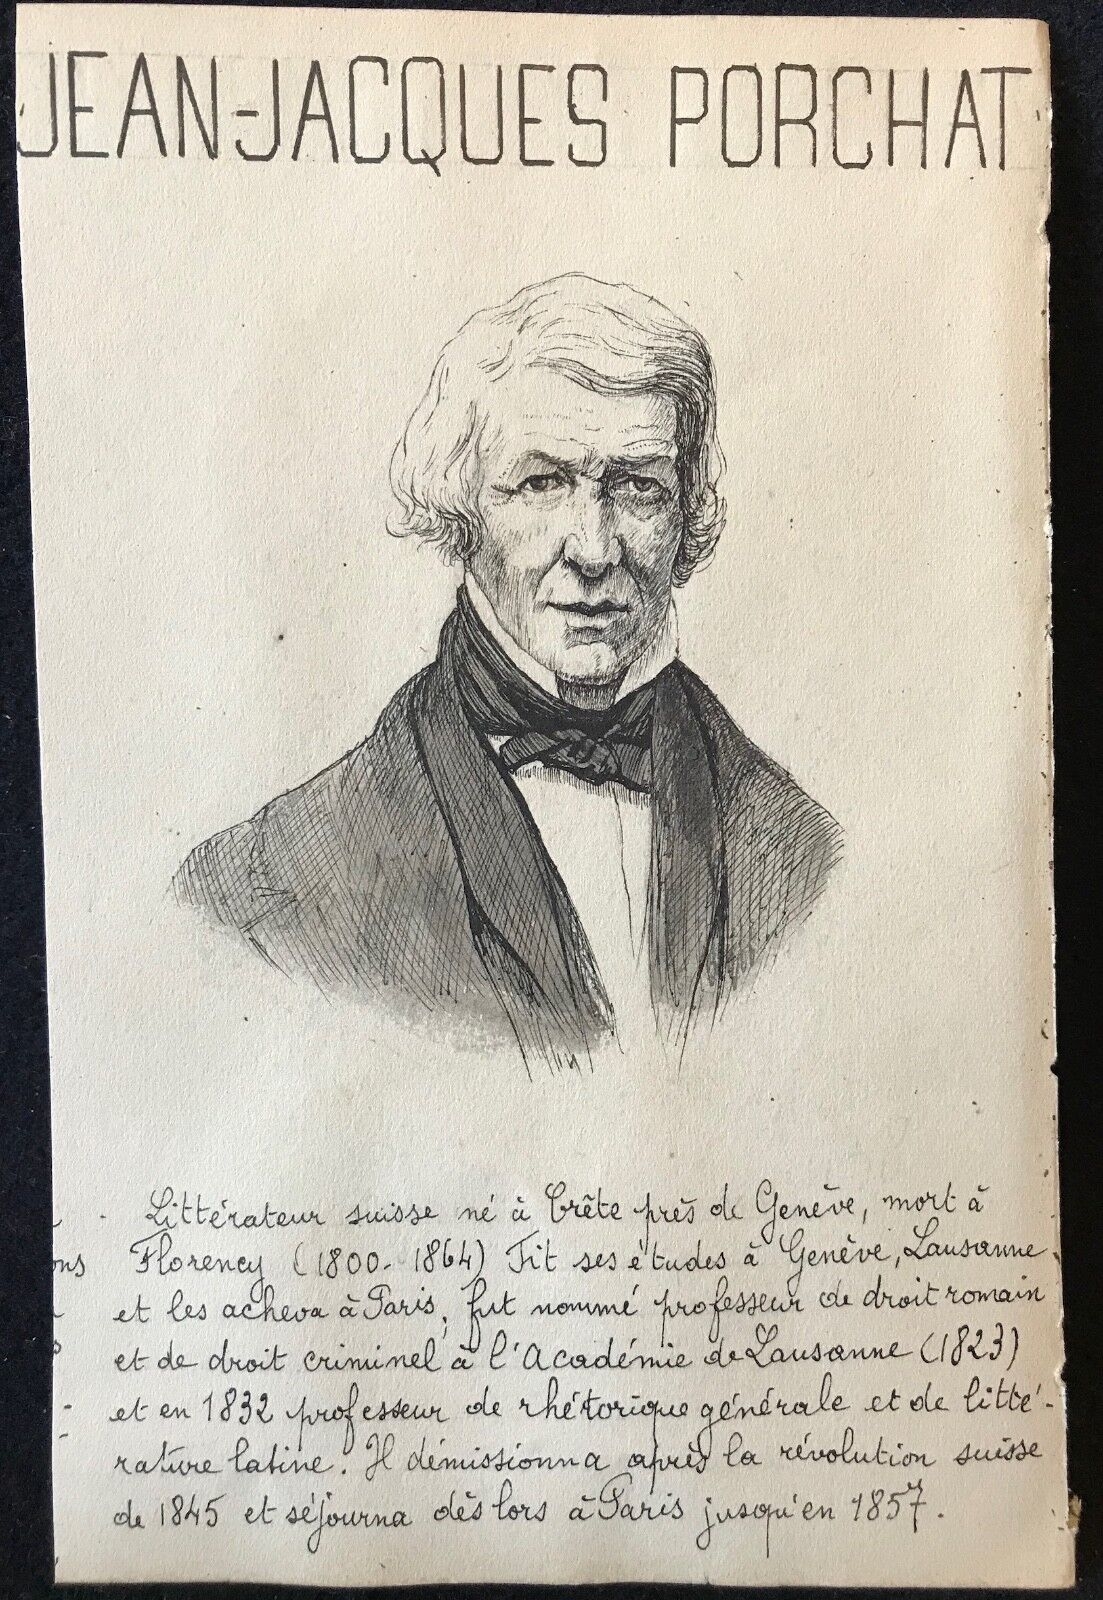 JEAN-JACQUES PORCHAT
Littérateur suisse né à Crête près de Genève, mort à
Florency (1800-1864) Fit ses études à Genève, Lausanne
et les acheva à Paris, fut nommé professeur de droit romain
et de droit criminel à l'Académie de Lausanne (1823)
et en 1832 professeur de rhétorique générale et de litté-
rature latine. Il démissionna après la révolution suisse
de 1845 et séjourna dès lors à Paris jusqu'en 1857.
ons